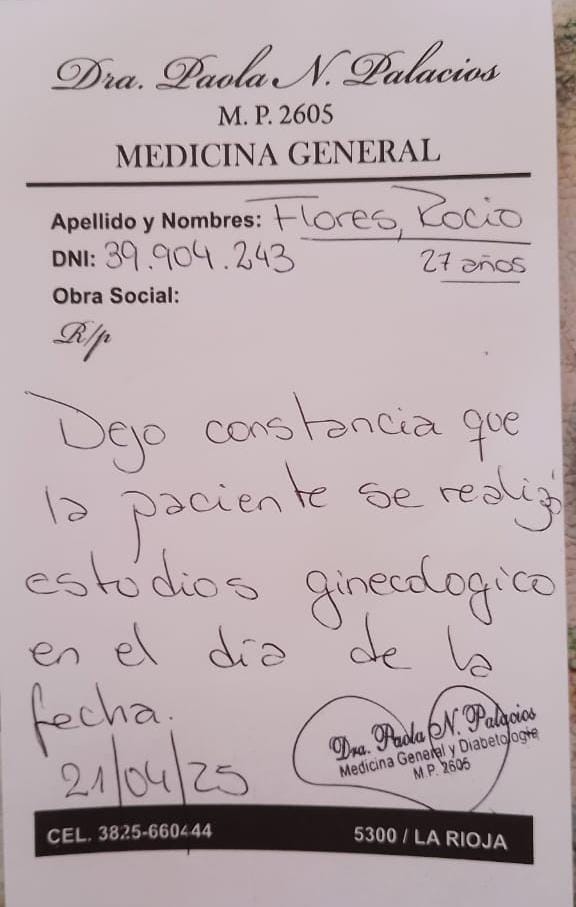 Dra. Paola N. Palacios
M. P. 2605
MEDICINA GENERAL
Apellido y Nombres: Flores, Rocio
DNI: 39.904.243 27 años
Obra Social:
R/p
Dejo constancia que
la paciente se realizó
estudios ginecologico
en el día de la
fecha.
21/04/25
Dra. Paola N. Palacios
Medicina General y Diabetologie
M.P. 2605
CEL. 3825-660444 5300 / LA RIOJA